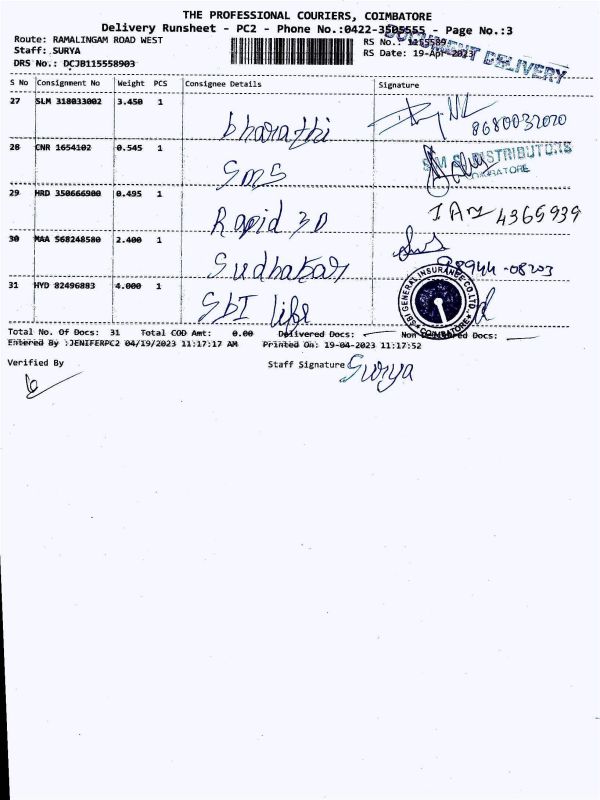 THE PROFESSIONAL COURIERS, COIMBATORE
Delivery Runsheet - PC2 - Phone No.:0422-3505555 - Page No.:3
Route: RAMALINGAM ROAD WEST
RS No.: 1155589
Staff: SURYA
RS Date: 19-Apr-2023
DOCUMENT DELIVERY
DRS No.: DCJB115558903
S No Consignment No Weight PCS Consignee Details Signature
27 SLM 318033002 3.450 1 bharathi 8680032020
28 CNR 1654102 0.545 1 SMS
DISTRIBUTORS
COIMBATORE
29 HRD 350666900 0.495 1 Rapid 3D 4365939
30 MAA 568248580 2.400 1 Sudhakar 98944-08203
31 HYD 82496883 4.000 1 SbI life
SBI GENERAL INSURANCE CO.LTD
COIMBATORE
Total No. Of Docs: 31 Total COD Amt: 0.00 Delivered Docs: Non Delivered Docs:
Entered By :JENIFERPC2 04/19/2023 11:17:17 AM Printed On: 19-04-2023 11:17:52
Verified By Staff Signature Surya